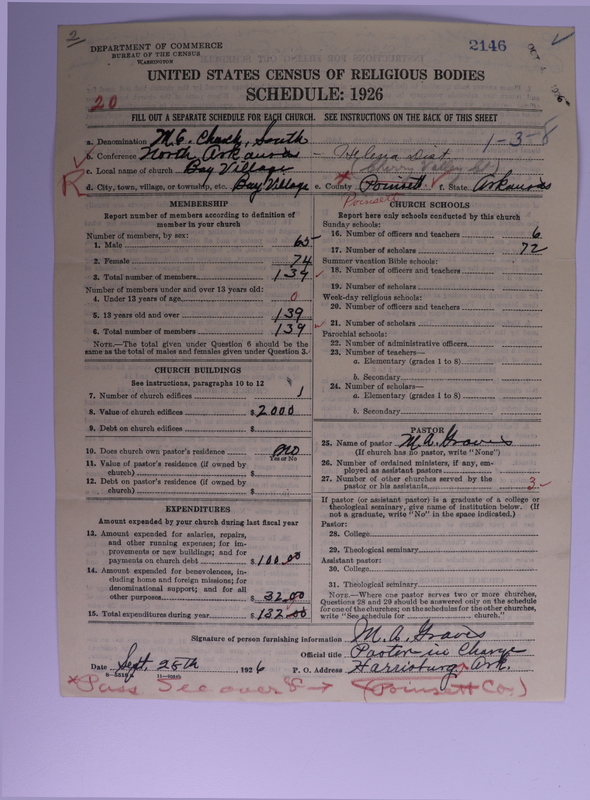 2
2146
DEPARTMENT OF COMMERCE
BUREAU OF THE CENSUS
WASHINGTON
UNITED STATES CENSUS OF RELIGIOUS BODIES
SCHEDULE: 1926
20
FILL OUT A SEPARATE SCHEDULE FOR EACH CHURCH. SEE INSTRUCTIONS ON THE BACK OF THIS SHEET
1-3-8
a. Denomination M. E. Church, South
b. Conference North Arkansas - Helena Dist
c. Local name of church Bay Village
R d. City, town, village, or township, etc. Bay Village e. County Poinsett f. State Arkansas
Poinsett
MEMBERSHIP
Report number of members according to definition of
member in your church
Number of members, by sex:
1. Male 65
2. Female 74
3. Total number of members 139
Number of members under and over 13 years old:
4. Under 13 years of age 0
5. 13 years old and over 139
6. Total number of members 139
NOTE.—The total given under Question 6 should be the
same as the total of males and females given under Question 3.
CHURCH BUILDINGS
See instructions, paragraphs 10 to 12
7. Number of church edifices 1
8. Value of church edifices $2000
9. Debt on church edifices $
10. Does church own pastor's residence no
Yes or No
11. Value of pastor's residence (if owned by
church) $
12. Debt on pastor's residence (if owned by
church) $
EXPENDITURES
Amount expended by your church during last fiscal year
13. Amount expended for salaries, repairs,
and other running expenses; for im-
provements or new buildings; and for
payments on church debt $100.00
14. Amount expended for benevolences, in-
cluding home and foreign missions; for
denominational support; and for all
other purposes $32.00
15. Total expenditures during year $132.00
CHURCH SCHOOLS
Report here only schools conducted by this church
Sunday schools:
16. Number of officers and teachers 6
17. Number of scholars 72
Summer vacation Bible schools:
18. Number of officers and teachers
19. Number of scholars
Week-day religious schools:
20. Number of officers and teachers
21. Number of scholars
Parochial schools:
22. Number of administrative officers
23. Number of teachers—
a. Elementary (grades 1 to 8)
b. Secondary
24. Number of scholars—
a. Elementary (grades 1 to 8)
b. Secondary
PASTOR
25. Name of pastor M. A. Graves
(If church has no pastor, write "None")
26. Number of ordained ministers, if any, em-
ployed as assistant pastors
27. Number of other churches served by the
pastor or his assistants 3
If pastor (or assistant pastor) is a graduate of a college or
theological seminary, give name of institution below. (If
not a graduate, write "No" in the space indicated.)
Pastor:
28. College
29. Theological seminary
Assistant pastor:
30. College
31. Theological seminary
NOTE.—Where one pastor serves two or more churches,
Questions 28 and 29 should be answered only on the schedule
for one of the churches; on the schedules for the other churches,
write "See schedule for church."
Signature of person furnishing information M. A. Graves
Official title Pastor in Charge
Date Sept. 28th, 1926 P. O. Address Harrisburg Ark.
*Pass See over → (Poinsett Co.)